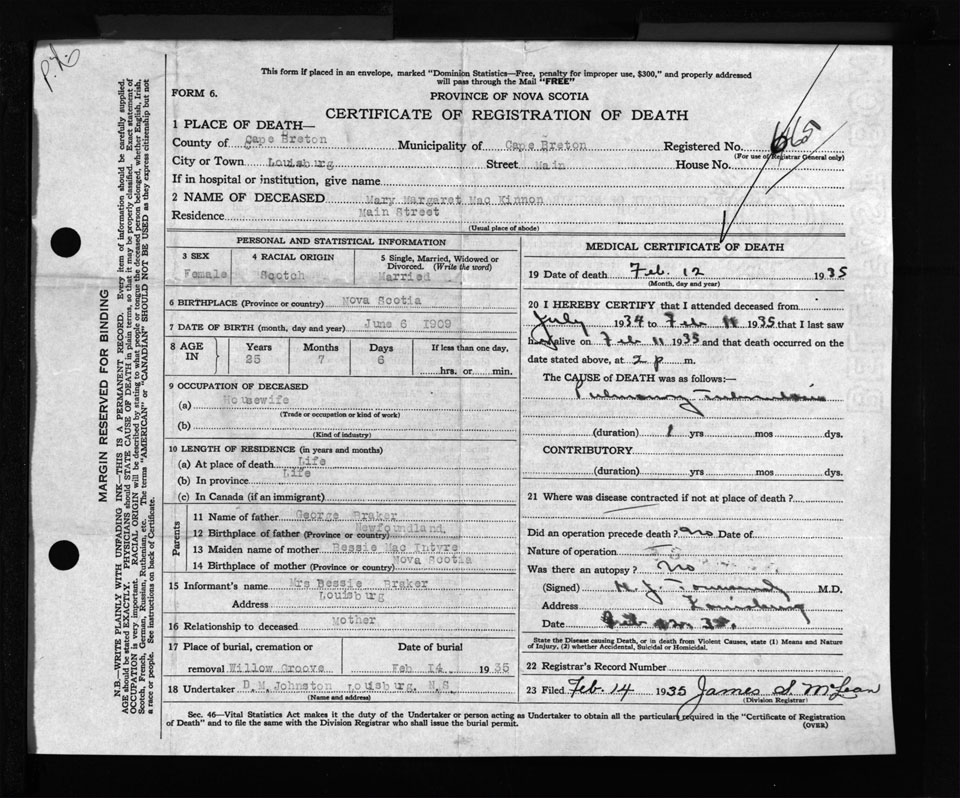 This form if placed in an envelope, marked "Dominion Statistics—Free, penalty for improper use, $300," and properly addressed
will pass through the Mail "FREE"
FORM 6.
PROVINCE OF NOVA SCOTIA
CERTIFICATE OF REGISTRATION OF DEATH
1 PLACE OF DEATH—
County of Cape Breton Municipality of Cape Breton Registered No. 665
(For use of Registrar General only)
City or Town Louisburg Street Main House No.
If in hospital or institution, give name
2 NAME OF DECEASED Mary Margaret Mac Kinnon
Residence Main Street
(Usual place of abode)
PERSONAL AND STATISTICAL INFORMATION
3 SEX 4 RACIAL ORIGIN 5 Single, Married, Widowed or
Divorced. (Write the word)
Female Scotch Married
6 BIRTHPLACE (Province or country) Nova Scotia
7 DATE OF BIRTH (month, day and year) June 6 1909
8 AGE IN Years Months Days If less than one day,
25 7 6
hrs. or min.
9 OCCUPATION OF DECEASED
(a) Housewife
(Trade or occupation or kind of work)
(b)
(Kind of industry)
10 LENGTH OF RESIDENCE (in years and months)
(a) At place of death Life
(b) In province Life
(c) In Canada (if an immigrant)
Parents
11 Name of father George Braker
12 Birthplace of father (Province or country) Newfoundland.
13 Maiden name of mother Bessie Mac Intyre
14 Birthplace of mother (Province or country) Nova Scotia
15 Informant's name Mrs Bessie Braker
Address Louisburg
16 Relationship to deceased Mother
17 Place of burial, cremation or Date of burial
removal Willow Groove Feb 14. 1935
18 Undertaker D M Johnston Louisburg. N.S
(Name and address)
MEDICAL CERTIFICATE OF DEATH
19 Date of death Feb. 12 1935
(Month, day and year)
20 I HEREBY CERTIFY that I attended deceased from
July 1934 to Feb 11 1935 that I last saw
her alive on Feb 11 1935 and that death occurred on the
date stated above, at 2 p m.
The CAUSE of DEATH was as follows:—
Pulmonary Tuberculosis
(duration) 1 yrs mos dys.
CONTRIBUTORY
(duration) yrs mos dys.
21 Where was disease contracted if not at place of death?
Did an operation precede death? no Date of
Nature of operation
Was there an autopsy? No
(Signed) M.D.
Address Louisburg
Date Feb
State the Disease causing Death, or in death from Violent Causes, state (1) Means and Nature
of Injury, (2) whether Accidental, Suicidal or Homicidal.
22 Registrar's Record Number
23 Filed Feb. 14 1935 James S. McLean
(Division Registrar)
Sec. 46—Vital Statistics Act makes it the duty of the Undertaker or person acting as Undertaker to obtain all the particulars required in the "Certificate of Registration
of Death" and to file the same with the Division Registrar who shall issue the burial permit. (OVER)
MARGIN RESERVED FOR BINDING
N.B.—WRITE PLAINLY WITH UNFADING INK—THIS IS A PERMANENT RECORD. Every item of information should be carefully supplied.
AGE should be stated EXACTLY. PHYSICIANS should STATE CAUSE OF DEATH in plain terms, so that it may be properly classified. Exact statement of
OCCUPATION is very important. RACIAL ORIGIN will be described by stating to what people or tongue the deceased person belonged, whether English, Irish,
Scotch, French, German, Russian, Ruthenian, etc. The terms "AMERICAN" or "CANADIAN" SHOULD NOT BE USED as they express citizenship but not
a race or people. See instructions on back of Certificate.